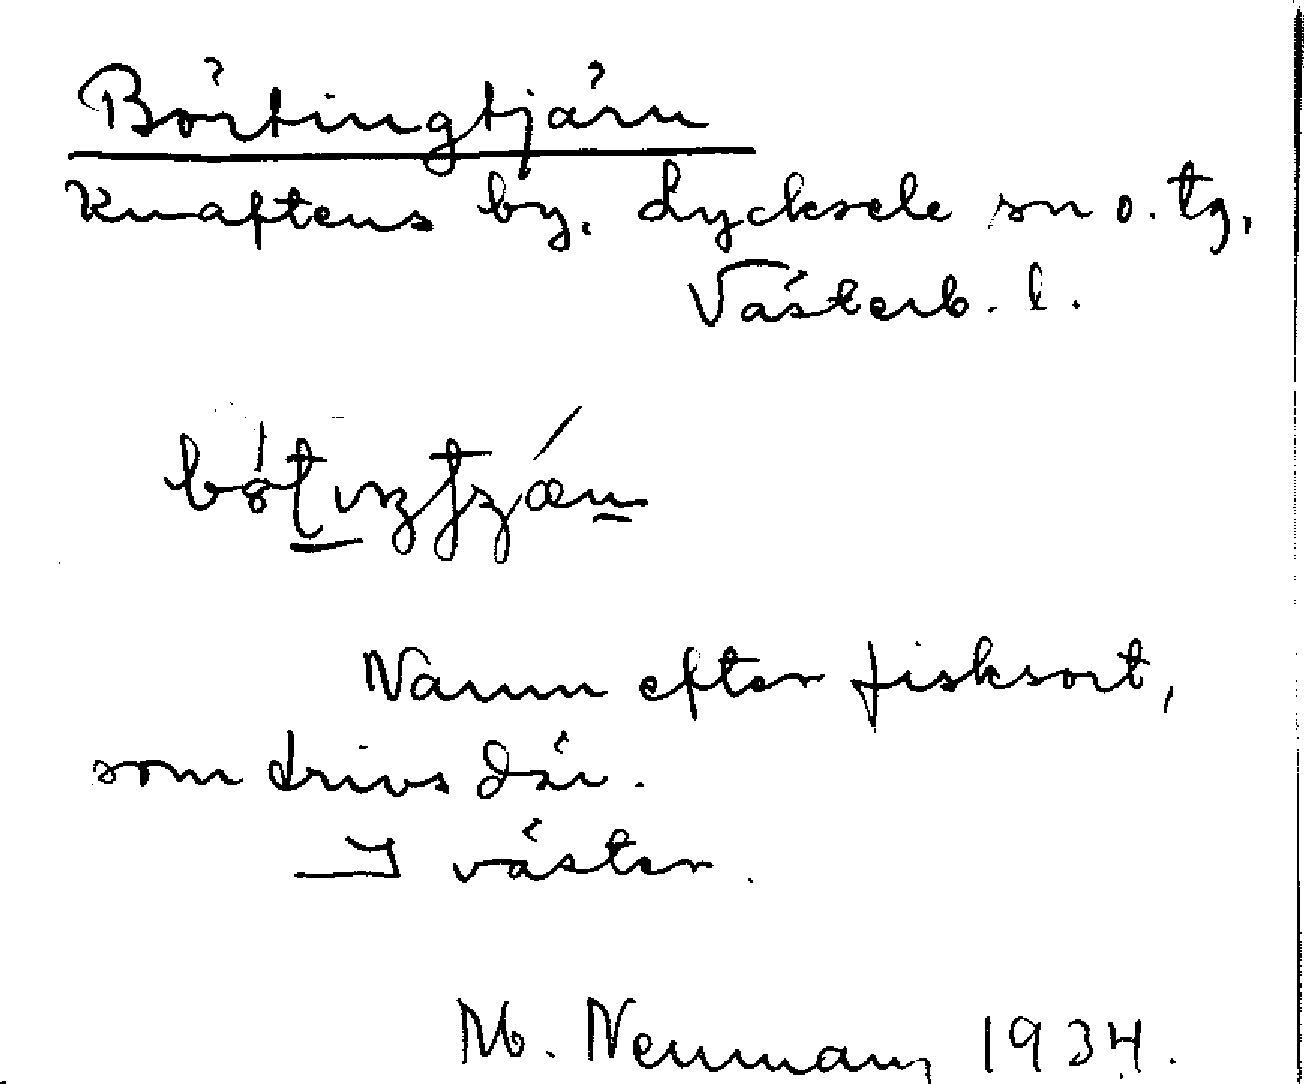 Börtingtjärn
Knaftens by. Lycksele sn o. tg,
Västerb. l.
Namn efter fisksort,
som trivs där.
I väster.
M. Neuman, 1934.